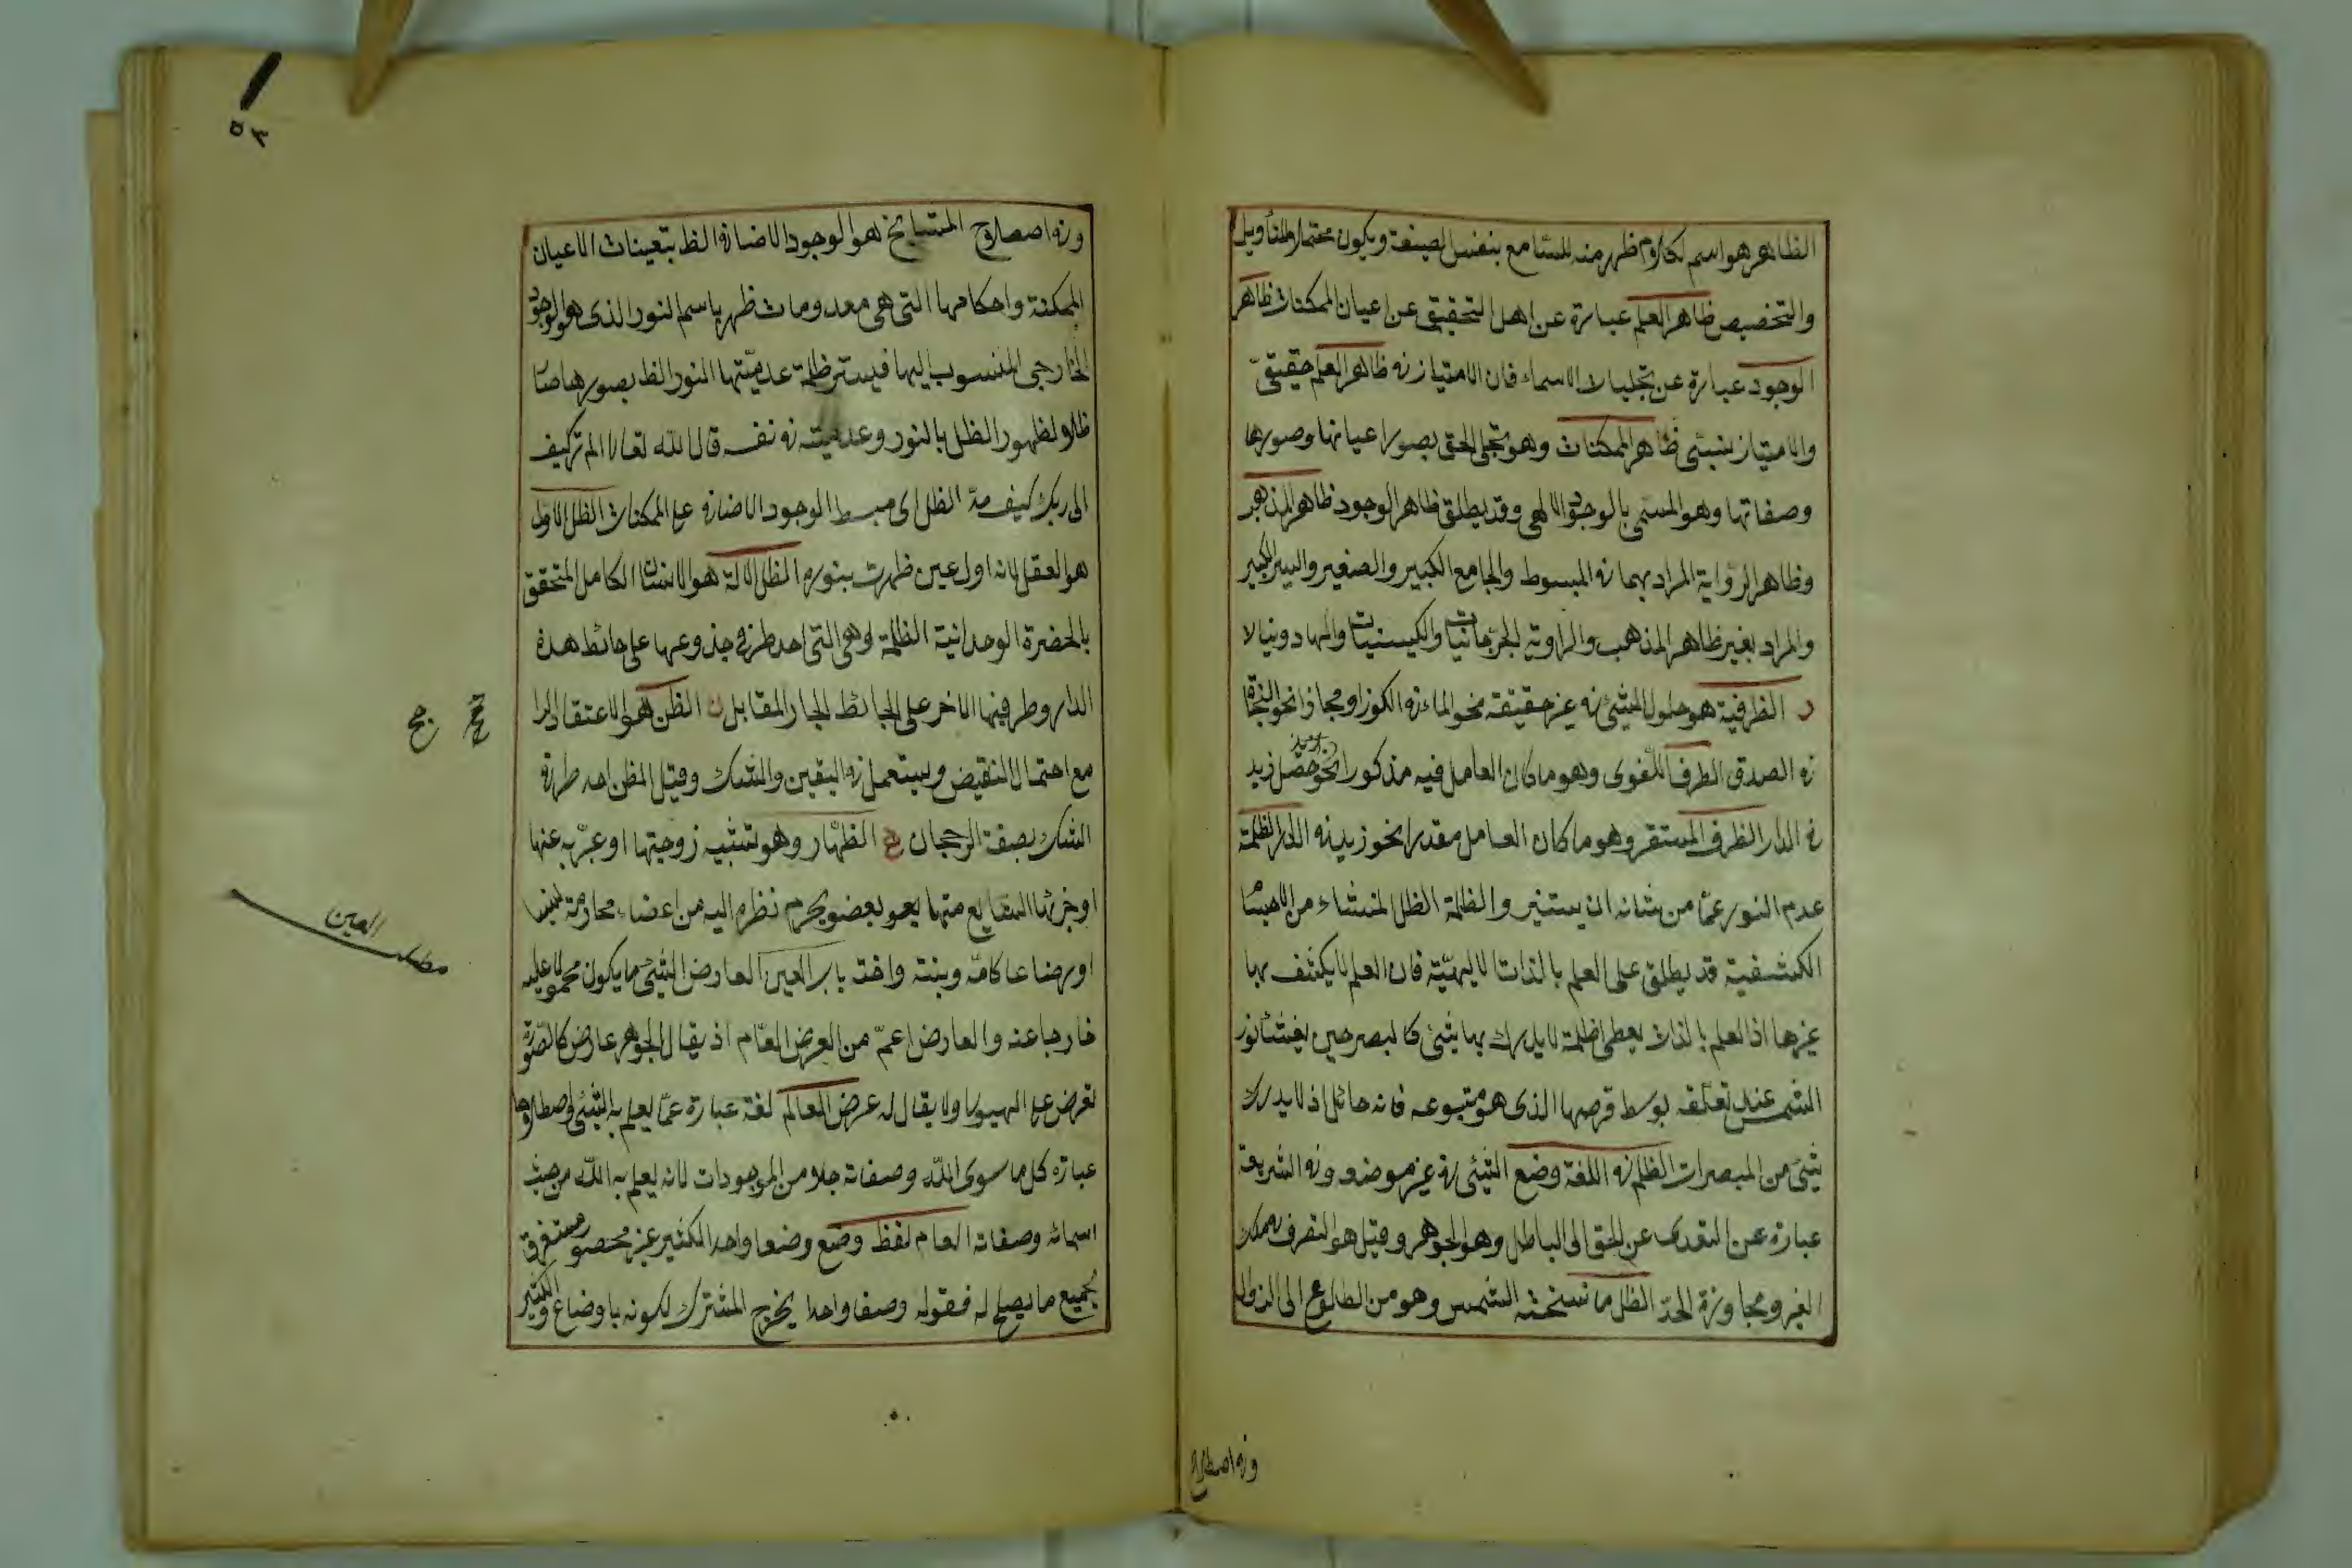 الظاهر هو اسم لكلام ظهر منه للسامع بنفس الصيغة ويكون محتملا للتأويل
والتخصيص ظاهر العلم عبارة عن اهل التحقيق عن اعيان الممكنات ظاهر
الوجود عبارة عن تجليات الاسماء فان الامتياز فى ظاهر العلم حقيقىّ
والامتياز نسبىّ ظاهر الممكنات وهو تجلى الحق بصور اعيانها وصورها
وصفاتها وهو المسمى بالوجود الالهى وقد يطلق ظاهر الوجود ظاهر المذهب
وظاهر الرّواية المراد بهما فى المبسوط والجامع الكبير والصغير والسير الكبير
والمراد بغير ظاهر المذهب والراوية الجرجانيات والكيسنيات والهادونيا لا
الظرفية هو حلول الشئ فى غير حقيقة نحو الماء فى الكوز او مجازا نحو النجاة
فى الصدق الظرف اللغوى وهو ما كان العامل فيه مذكورا نحو حصل زيد
فى الدار الظرف المستقر وهو ما كان العامل مقدرا نحو زيد فى الدار الظلمة
عدم النور عمّا من شانه ان يستنير والظلمة الظل المنشاء من الاجسام
الكشفية قد يطلق على العلم بالذات الالهيّة فان العلم لا يكشف بها
غيرها اذ العلم بالذات يعطى ظلمة لا يدرك بها شئ كالبصر حين يغشاه نور
الشمس عند تعلّقه بوسط قرصها الذى هو متبوعه فانه حائل اذ لا يدرك
شئ من المبصرات الظلم فى اللغة وضع الشئ فى غير موضعه وفى الشريعة
عبارة عن التعدى عن الحق الى الباطل وهو الجوهر وقيل هو التصرف فى ملك
الغير ومجاوزة الحدّ الظل ما نسخته الشمس وهو من الطلوع الى الزوال
وفى اصطلاح
٥٣
وفى اصطلاح المشايخ هو الوجود الاضافى الظ بتعينات الاعيان
الممكنة واحكامها التى هى معدومات ظهر باسم النور الذى هو الوجود
الخارجى المنسوب اليها فيستر ظلمة عدميّتها النور الظ بصورها صار
ظلا لظهور الظل بالنور وعدميته فى نفسه قال الله تعالى الم تر كيف
الى ربك كيف مدّ الظل اى مبسط الوجود الاضافى على الممكنات الظل الاول
هو العقل لانه اول عين ظهرت بنوره الظل الاله هو الانسان الكامل المتحقق
بالحضرة الوحدانية الظلة وهى التى احد طرفى جذوعها على حائط هذه
الدار وطرفيها الاخر على الحائط الجار المقابل ن الظن هو الاعتقاد الر
مع احتمال النقيض ويستعمل فى اليقين والشك وقيل الظن احد طرفى
الشك بصفة الرجحان الظهار وهو تشبيه زوجيتها او عبّر به عنها
او جزئها الشايع منها يعو بعضو يحرم نظره اليه من اعضاء محارمه نسبا
او رضاعا كامّه وبنته واخته باب العين العارض الشئ ما يكون محمولا عليه
خارجا عنه والعارض اعمّ من العرض العّام اذ يقال الجوهر عارض كالصّورة
تعرض على الهيولا ولا يقال له عرض العالم لغة عبارة عمّا يعلم به الشئ
عبارة كل ما سوى اللّه وصفاته جلا من الموجودات لانه يعلم به اللّه من حيث
اسمائه وصفاته العام لفظ وضع وضعا واحدا لكثير غير محصور مستغرق
بجميع ما يصلح له فقوله وصفا واحدا يخرج المشترك لكونه باوضاع ولكثير
مطلب العين